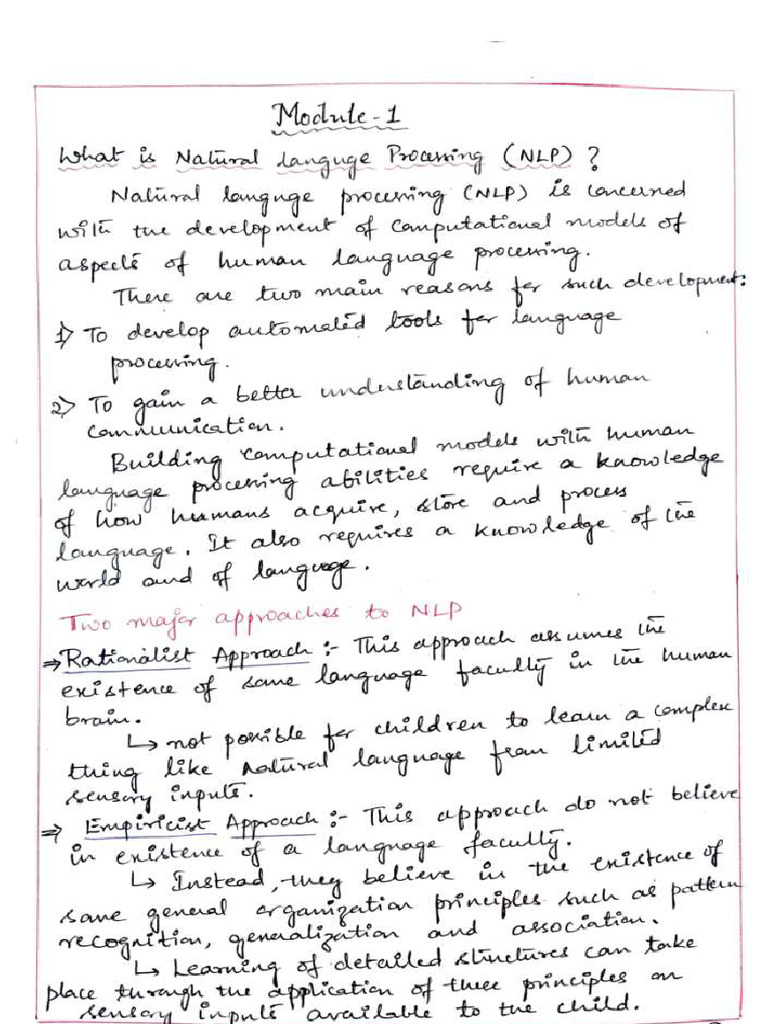 Module-1
What is Natural Languge Processing (NLP) ?
Natural languge processing (NLP) is concerned
with the development of computational models of
aspects of human language processing.
There are two main reasons for such development:
1) To develop automated tools for language
processing.
2) To gain a better understanding of human
communication.
Building computational models with human
language processing abilities require a knowledge
of how humans acquire, store and process
language. It also requires a knowledge of the
world and of language.
Two major approaches to NLP
⇒ Rationalist Approach :- This approach assumes the
existence of some language faculty in the human
brain.
↳ not possible for children to learn a complex
thing like natural language from limited
sensory inputs.
⇒ Empiricist Approach :- This approach do not believe
in existence of a language faculty.
↳ Instead, they believe in the existence of
some general organization principles such as pattern
recognition, generalization and association.
↳ Learning of detailed structures can take
place through the application of these principles on
sensory inputs available to the child.